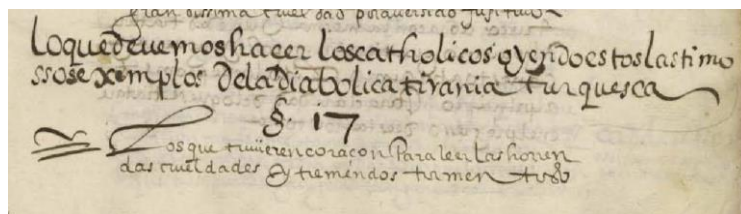 gran dissima crueldad por aver sido fugitivo
Lo que devemos hacer los catholicos oyendo estos lastimo
ssos exemplos de la diabolica tirania turquesca
§. 17
Los que tuvieren coraçon para leer las horren
das crueldades y tremendos tormentos